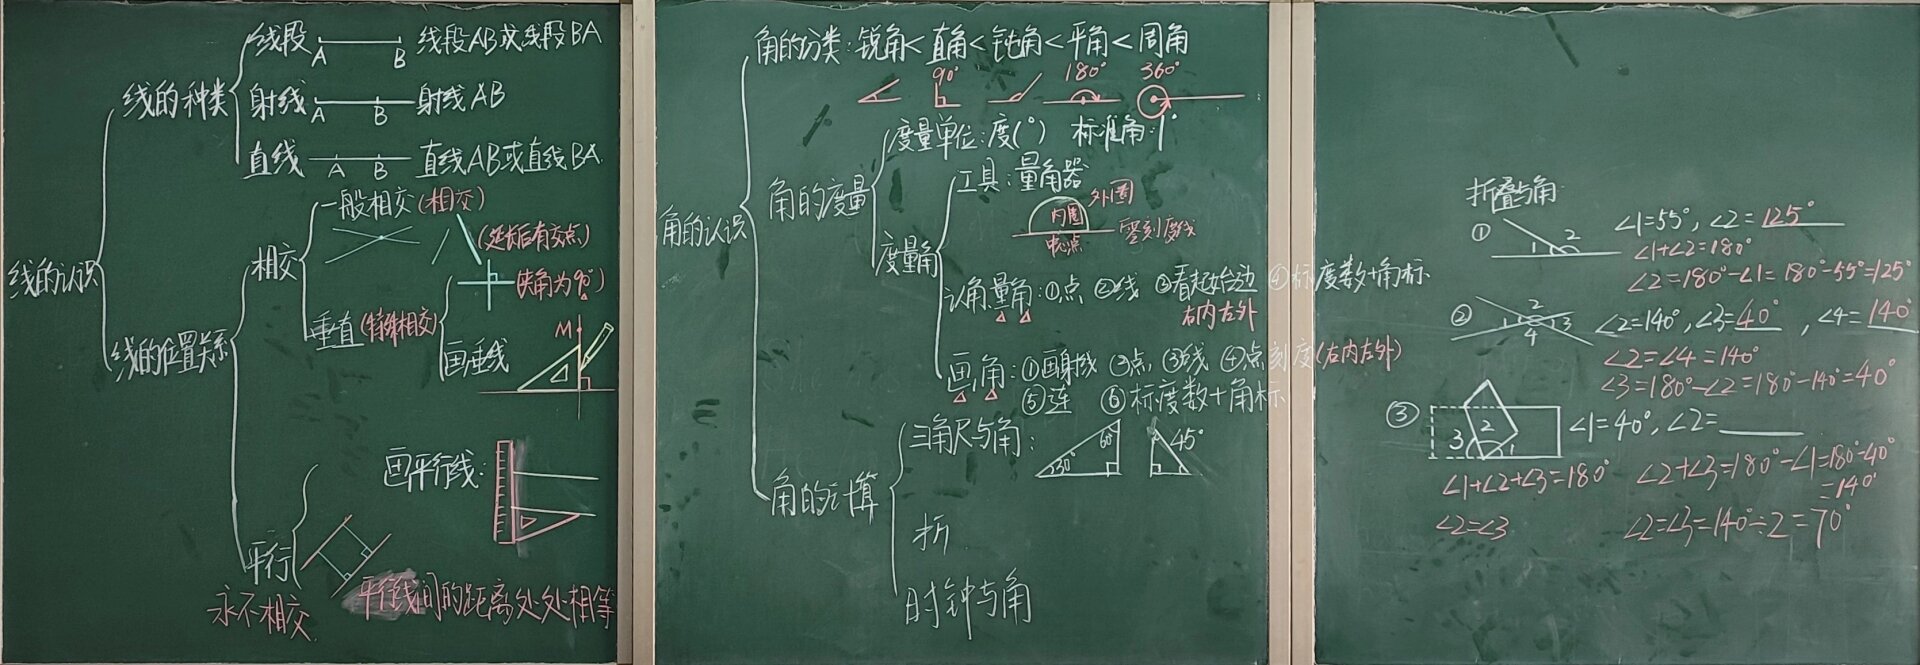 线的认识
线的种类
线段 A B 线段AB或线段BA
射线 A B 射线AB
直线 A B 直线AB或直线BA.
线的位置关系
相交
一般相交(相交)
(延长后有交点)
垂直(特殊相交)
(夹角为90°)
画垂线
M
平行
永不相交.
画平行线:
平行线间的距离处处相等
角的认识
角的分类:锐角<直角<钝角<平角<周角
90° 180° 360°
角的度量
度量单位:度(°) 标准角:1°
度量角
工具:量角器
内圈 外圈
中心点 零刻度线
认角、量角:①点 ②线 ③看起始边 ④标度数+角标
右内左外
画角:①画射线 ②点 ③线 ④点刻度(右内左外)
⑤连 ⑥标度数+角标
角的计算
三角尺与角:
30° 60° 45°
折
时钟与角
折叠与角
① 1 2 ∠1=55°,∠2=125°
∠1+∠2=180°
∠2=180°-∠1=180°-55°=125°
② 1 2 3 4 ∠2=140°,∠3=40°,∠4=140°
∠2=∠4=140°
∠3=180°-∠2=180°-140°=40°
③ 3 2 1 ∠1=40°,∠2=
∠1+∠2+∠3=180° ∠2+∠3=180°-∠1=180°-40°
=140°
∠2=∠3 ∠2=∠3=140°÷2=70°